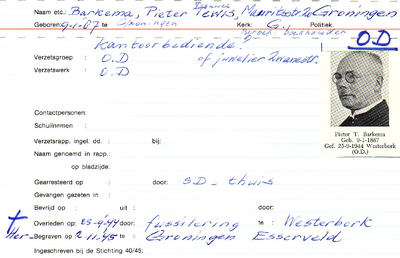 Naam etc.: Barkema, Pieter Tewis, Mauritsstr. Groningen
Geboren: 9-1-87 te Groningen Kerk: G. Politiek:
boekhouder
Kantoorbediende? O.D
Verzetsgroep : O.D of juwelier
Verzetswerk : O.D
Contactpersonen:
Schuilnamen :
Verzetsrapp. ingl. dd: bij:
Naam genoemd in rapp.:
op bladzijde:
Gearresteerd op : door: S.D - thuis
Gevangen gezeten in :
Bevrijd op : uit : door:
Overleden op: 25-9-44 door: fussilering te : Westerbork
Her- Begraven op : 2-11-45 te : Groningen Esserveld
Ingeschreven bij de Stichting 40/45:
Pieter T. Barkema
Geb. 9-1-1887
Gef. 25-9-1944 Westerbork
(O.D.)